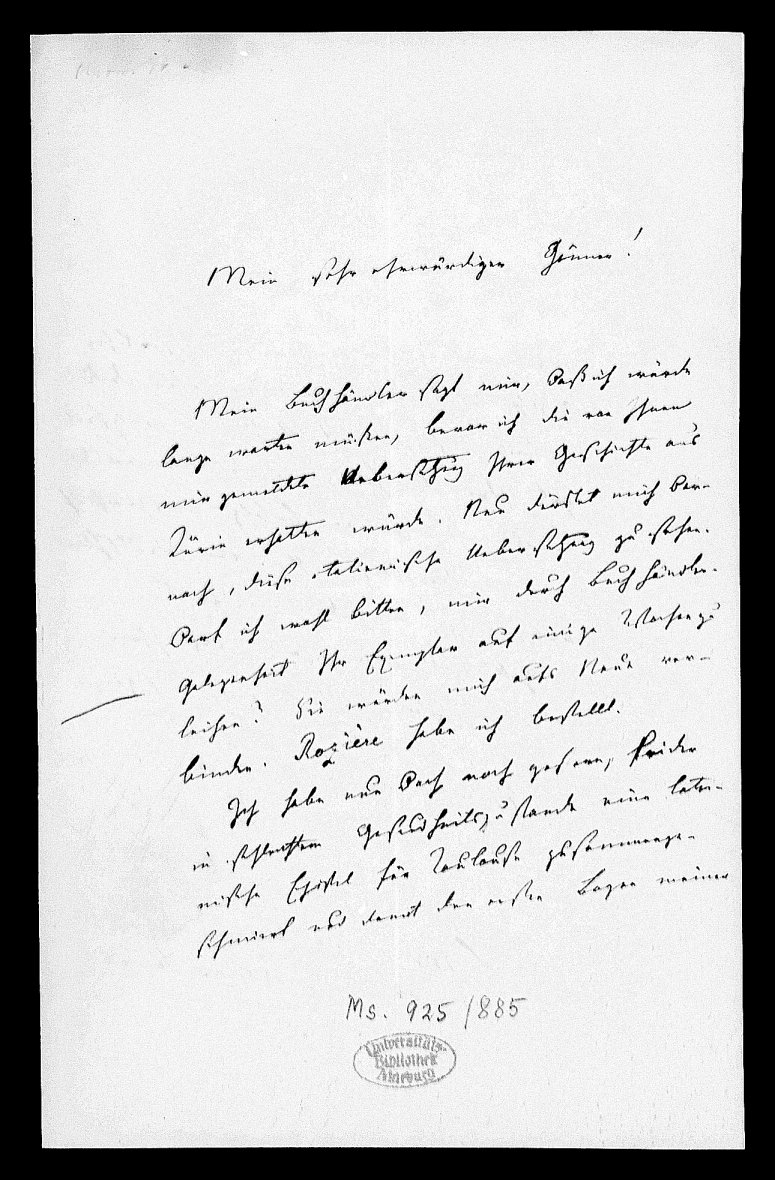 Mein sehr ehrwürdiger Gönner!
Mein Buchhändler sagt mir, daß ich würde
lange warten müßen, bevor ich die von Ihnen
mir gemeldete Uebersetzung Ihrer Geschichte aus
Turin erhalten würde. Nun dürstet mich dar-
nach, diese italienische Uebersetzung zu sehen.
Darf ich wohl bitten, mir durch Buchhändler-
gelegenheit Ihr Exemplar auf einige Wochen zu
leihen? Sie würden mich aufs Neue ver-
binden. Rozière habe ich bestellt.
Ich habe nun doch noch gestern, leider
in schlechtem Gesundheitszustande eine latei-
nische Epistel für Toulouse zusammenge-
schmiert und damit den ersten Bogen meiner
Ms. 925/885
Universitäts-
Bibliothek
Marburg